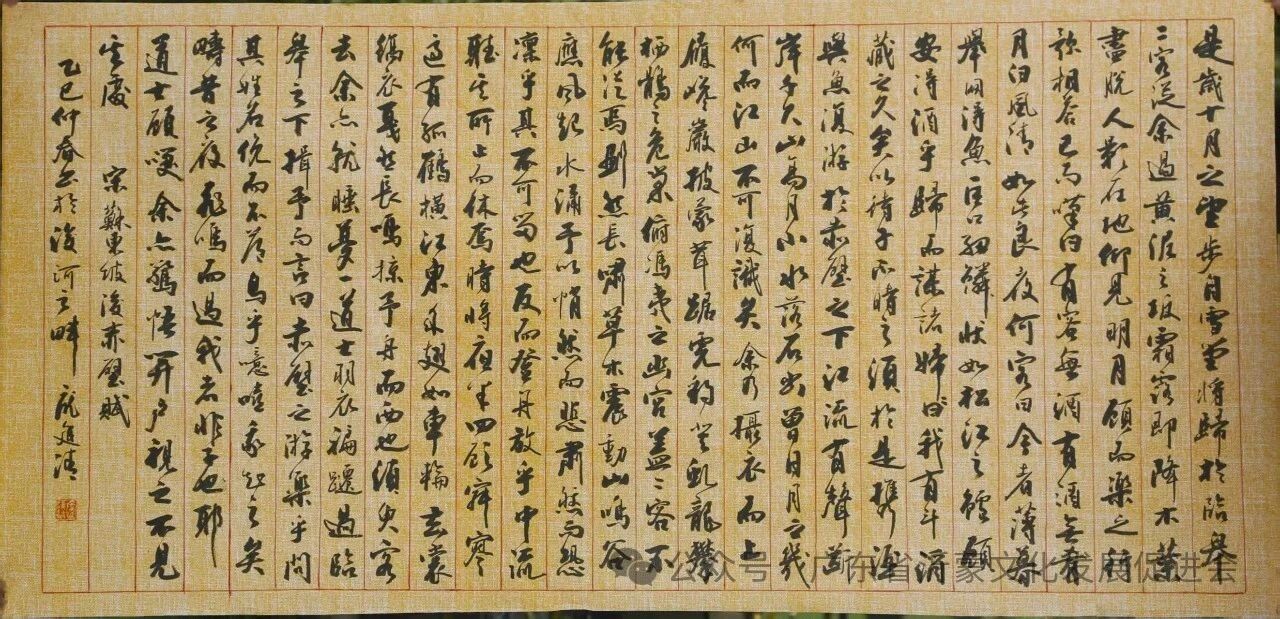 是歲十月之望步自雪堂將歸於臨皋
二客從余過黃泥之坂霜露既降木葉
盡脫人影在地仰見明月顧而樂之行
歌相答已而嘆曰有客無酒有酒無肴
月白風清如此良夜何客曰今者薄暮
舉網得魚巨口細鱗狀如松江之鱸顧
安得酒乎歸而謀諸婦婦曰我有斗酒
藏之久矣以待子不時之須於是攜酒
與魚復游於赤壁之下江流有聲斷
岸千尺山高月小水落石出曾日月之幾
何而江山不可復識矣余乃攝衣而上
履巉巖披蒙茸踞虎豹登虯龍攀
栖鶻之危巢俯馮夷之幽宮蓋二客不
能從焉劃然長嘯草木震動山鳴谷
應風起水涌予亦悄然而悲肅然而恐
凜乎其不可留也反而登舟放乎中流
聽其所止而休焉時將夜半四顧寂寥
適有孤鶴橫江東來翅如車輪玄裳
縞衣戛然長鳴掠予舟而西也須臾客
去余亦就睡夢一道士羽衣蹁躚過臨
皋之下揖予而言曰赤壁之游樂乎問
其姓名俛而不答嗚乎噫嘻我知之矣
疇昔之夜飛鳴而過我者非子也耶
道士顧笑余亦驚悟開戶視之不見
其處 宋蘇東坡後赤壁賦
乙巳仲春書於浚河之畔 龐進清
公众号·广东省蒙文化发展促进会